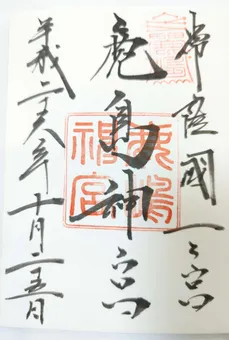 常陸國一之宮
鹿島神宮
鹿島神宮
平成二十六年十月二十五日